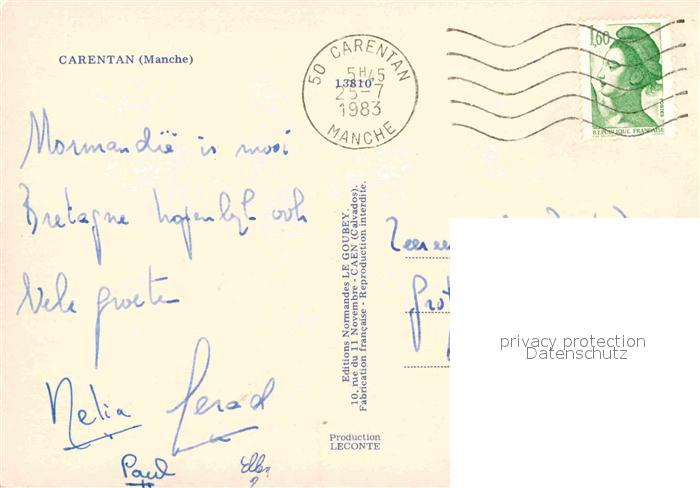 CARENTAN (Manche)
50 CARENTAN
5H45
25-7
1983
MANCHE
13810
1,60
POSTES
REPUBLIQUE FRANCAISE
Normandië is mooi
Bretagne hopenlyk ook
Vele groeten
Nelia Gerad
Paul Ellen
Editions Normandes LE GOUBEY.
10, rue du 11 Novembre - CAEN (Calvados).
Fabrication française - Reproduction interdite.
Production
LECONTE
privacy protection
Datenschutz